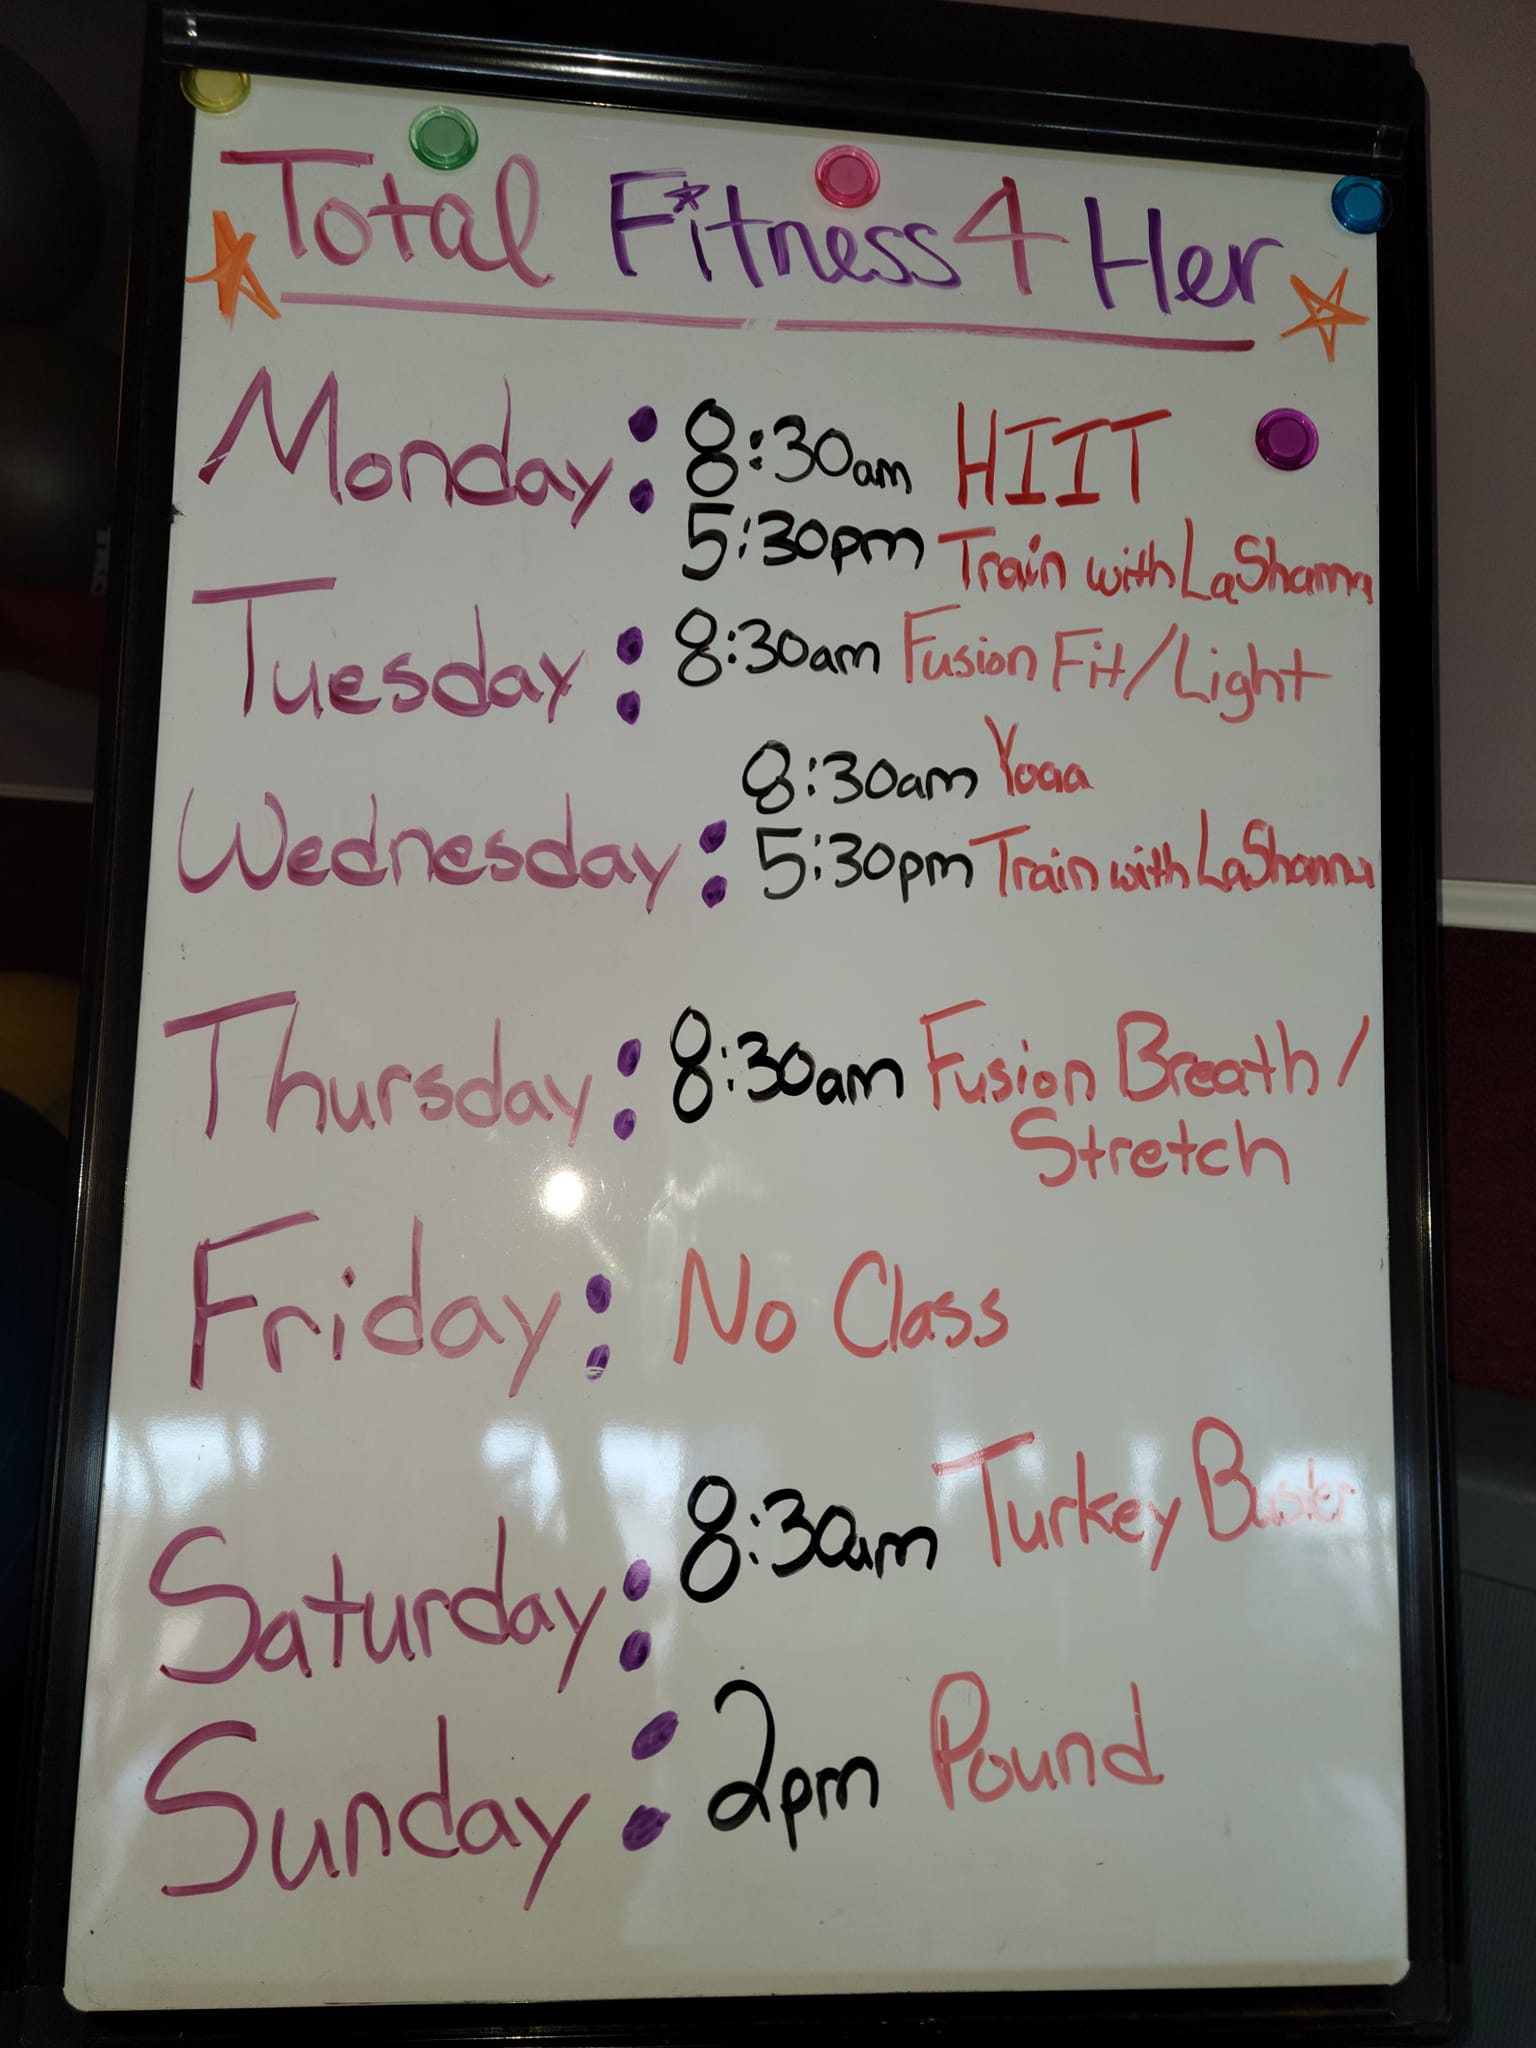 Total Fitness 4 Her
Monday: 8:30am HIIT
5:30pm Train with LaShanna
Tuesday: 8:30am Fusion Fit/Light
8:30am Yoga
Wednesday: 5:30pm Train with LaShanna
Thursday: 8:30am Fusion Breath/
Stretch
Friday: No Class
Saturday: 8:30am Turkey Buster
Sunday: 2pm Pound